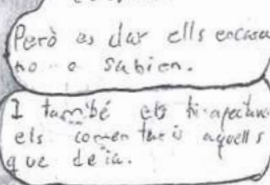 Però es clar ells encasa
no o sabien.
I també els hi afectava
els comentaris aquells
que deia.